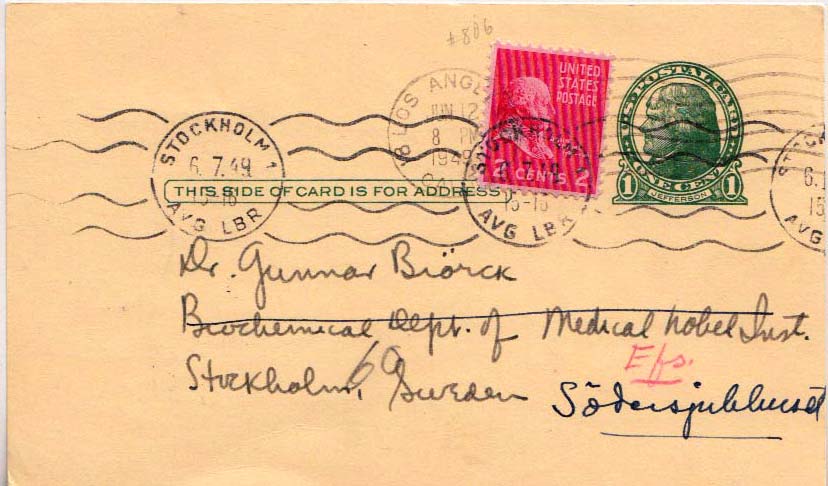 #806
LOS ANGEL
JUN 12
8 PM
1949
UNITED
STATES
POSTAGE
2 CENTS 2
U.S. POSTAL CARD
1 ONE CENT 1
JEFFERSON
STOCKHOLM 1
6. 7. 49
15-16
AVG LBR
STOCKHOLM 1
6. 7. 49
15-16
AVG LBR
STOCK
6.
15
AVG
THIS SIDE OF CARD IS FOR ADDRESS
Dr. Gunnar Biörck
Biochemical Dept. of Medical Nobel Inst.
Efs.
Stockholm, 60 Sweden
Södersjukhuset